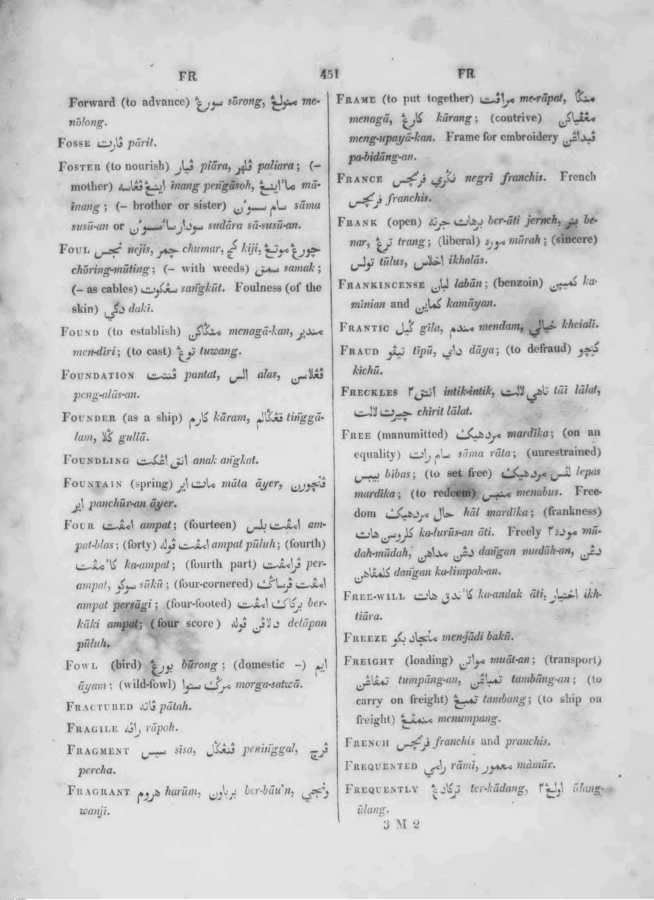 FR 451 FR
Forward (to advance) سورغ sōrong, منولغ me-
nōlong.
FOSSE ڤارت pārit.
FOSTER (to nourish) ڤيار piāra, ڤلهر paliara; (–
mother) اينڠ ڤڠاسه inang peng̃āsoh, ما اينڠ mā-
inang; (– brother or sister) سام سسون sāma
susū-an or سودار ساسسون sudāra sā-susū-an.
FOUL نجس nejis, چمر chumar, كج kiji, چورڠ موتڠ
chōring-mūting; (– with weeds) سمق samak;
(– as cables) سڠكوت sang̃kūt. Foulness (of the
skin) دكي daki.
FOUND (to establish) منڬاكن menagā-kan, مندير
men-dīri; (to cast) توڠ tuwang.
FOUNDATION ڤنتت pantat, الس alas, ڤڠلاسن
peng-alās-an.
FOUNDER (as a ship) كارم kāram, تڠڬالم ting̃gā-
lam, ڬلا gullā.
FOUNDLING انق اڠكت anak ang̃kat.
FOUNTAIN (spring) مات اير māta āyer, ڤنچورن
اير panchūr-an āyer.
FOUR امڤت ampat; (fourteen) امڤت بلس am-
pat-blas; (forty) امڤت ڤوله ampat pūluh; (fourth)
كامڤت ka-ampat; (fourth part) ڤرامڤت per-
ampat, سوكو sūkū; (four-cornered) امڤت ڤرساڬي
ampat persāgi; (four-footed) بركاكي امڤت ber-
kāki ampat; (four score) دلاڤن ڤوله delāpan
pūluh.
FOWL (bird) بورڠ būrong; (domestic –) ايم
āyam; (wild-fowl) مرڬ ستوا morga-satwā.
FRACTURED ڤاته pātah.
FRAGILE راڤه rāpoh.
FRAGMENT سيس sīsa, ڤنڠڬل pening̃gal, ڤرچ
percha.
FRAGRANT هروم harūm, برباون ber-bāu'n, ونجي
wanji.
FRAME (to put together) مراڤت me-rāpat, منڬا
menagā, كارڠ kārang; (contrive) مڠڤياكن
meng-upayā-kan. Frame for embroidery ڤبداڠن
pa-bidāng-an.
FRANCE نڬري فرنچس negrī franchis. French
فرنچس franchis.
FRANK (open) برهات جرنه ber-āti jerneh, بنر be-
nar, ترڠ trang; (liberal) موره mūrah; (sincere)
تولس tūlus, اخلاس ikhalās.
FRANKINCENSE لبان labān; (benzoin) كمنين ka-
minian and كماين kamāyan.
FRANTIC ڬيل gīla, مندم mendam, خيالي kheiali.
FRAUD تيڤو tīpū, داي dāya; (to defraud) كيچو
kichū.
FRECKLES انتق٢ intik-intik, تاهي لالت tāi lālat,
چيرت لالت chirit lālat.
FREE (manumitted) مردهيك mardika; (on an
equality) سام رات sāma rāta; (unrestrained)
بيبس bibas; (to set free) لڤس مردهيك lepas
mardīka; (to redeem) منبس menabus. Free-
dom حال مردهيك hāl mardīka; (frankness)
كلروسن هات ka-lurūs-an āti. Freely موده٢ mū-
dah-mūdah, دڠن مداهن dang̃an mudāh-an, دڠن
كلمڤاهن dang̃an ka-limpah-an.
FREE-WILL كاندق هات ka-andak āti, اختيار ikh-
tiāra.
FREEZE منجاد بكو men-jādi bakū.
FREIGHT (loading) مواتن muāt-an; (transport)
تمڤاڠن tumpāng-an, تمباڠن tambāng-an; (to
carry on freight) تمبڠ tambang; (to ship on
freight) منمڤڠ menumpang.
FRENCH فرنچس franchis and pranchis.
FREQUENTED رامي rāmi, معمور māmūr.
FREQUENTLY تركادڠ ter-kādang, اولڠ٢ ūlang-
ūlang.
3 M 2